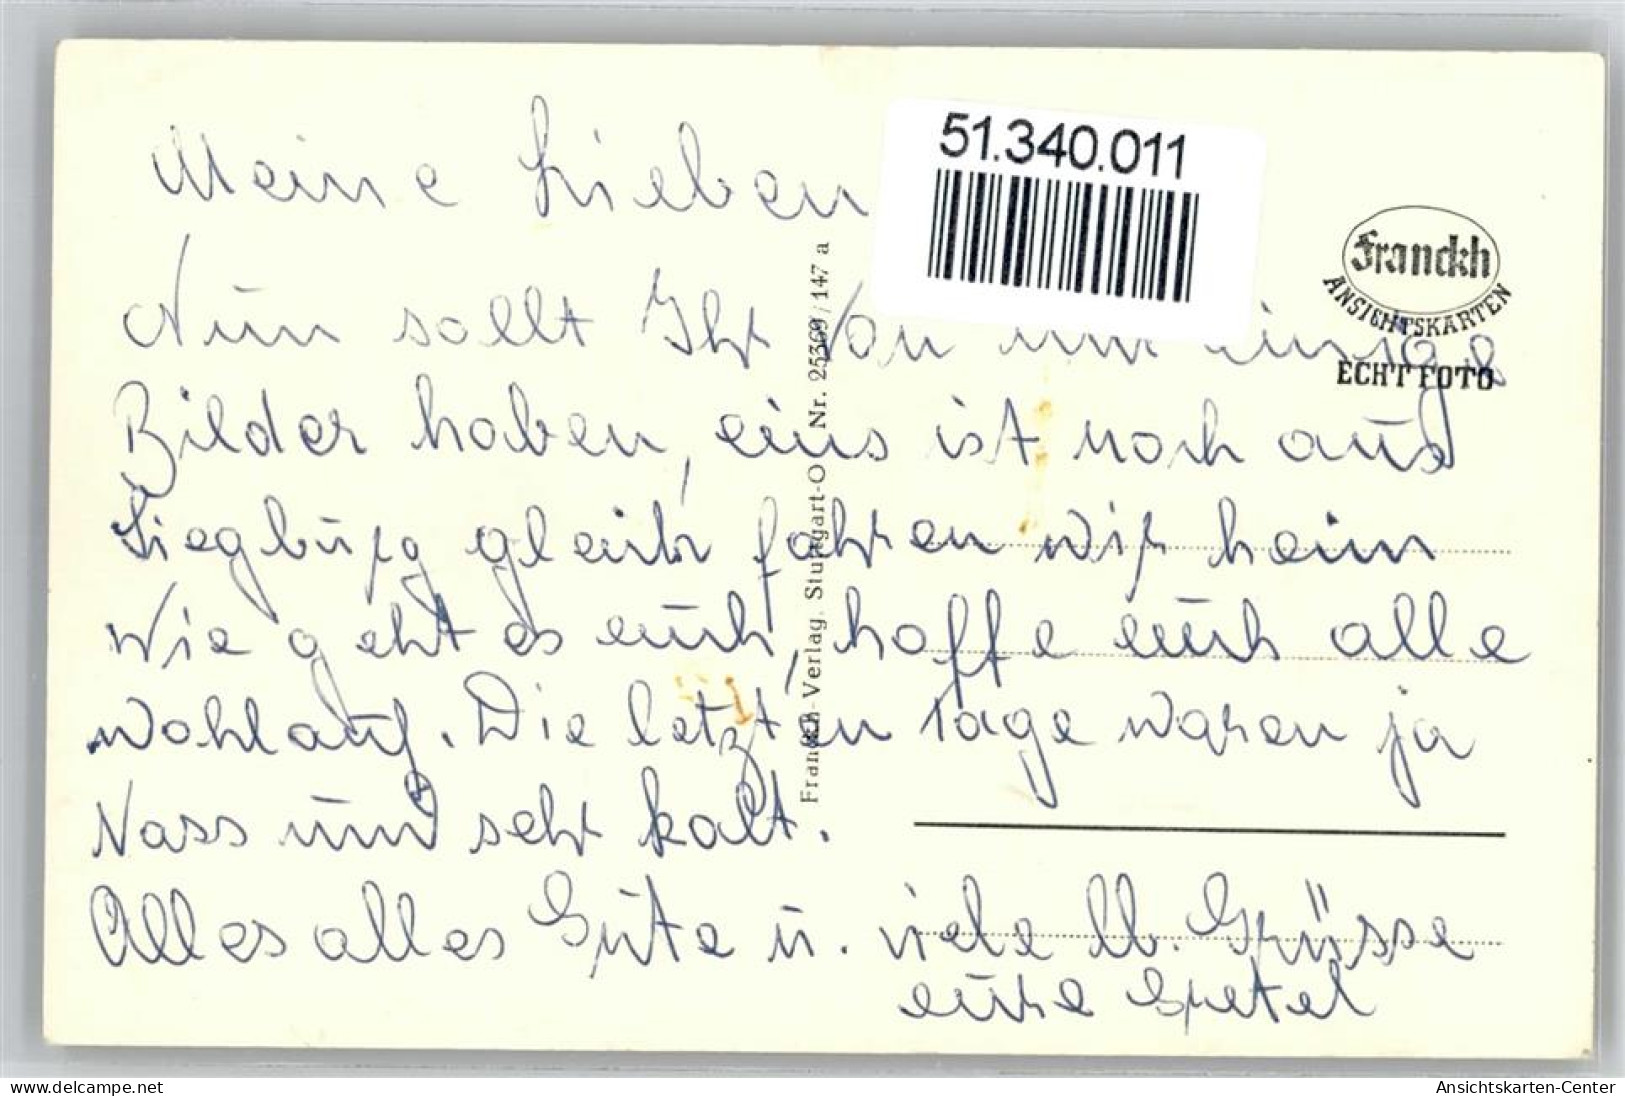 51.340.011
Franckh
ANSICHTSKARTEN
ECHT FOTO
Meine Lieben
Nun sollt Ihr von mir einige
Bilder haben, eins ist noch aus
Siegburg gleich fahren wir heim
Wie geht es euch, hoffe euch alle
wohlauf. Die letzten Tage waren ja
Nass und sehr kalt.
Alles alles Gute u. viele lb. Grüsse
eure Gretel
Franckh-Verlag, Stuttgart-O Nr. 25369/147 a
www.delcampe.net
Ansichtskarten-Center